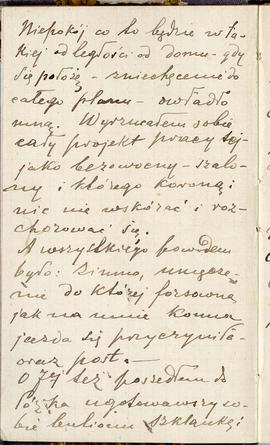 Niepokój co to będzie w ta-
kiej odległości od domu - gdy
się położę - zniechęcenie do
całego planu - owładło
mną. Wyrzucałem sobie
cały projekt pracy tej -
jako bezowocny - szalo-
ny i którego koroną:
nic nie wskórać i roz-
chorować się.
A wszystkiego powodem
było: zimno, umęcze-
nie do której forsowna
jak na mnie konna
jazda się przyczyniła -
oraz post. -
O 7ej też poszedłem do
łóżka ugotowawszy so-
bie bulionu szklankę;